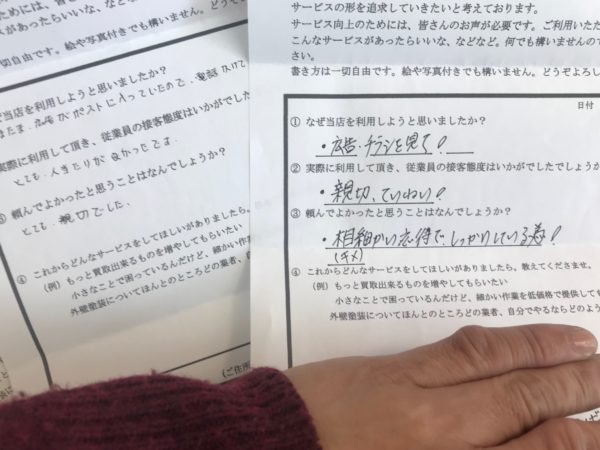 一切自由です。絵や写真付きでも構いません。どうぞ
なぜ当店を利用しようと思いましたか?
広告がポストに入っていたので、電話
実際に利用して頂き、従業員の接客態度はいかがでした
とても、人あたりが良かったです。
③ 頼んでよかったと思うことはなんでしょうか?
とても親切でした。
④ これからどんなサービスをしてほしいがありましたら、
(例)もっと買取出来るものを増やしてもらいたい
小さなことで困っているんだけど、細かい作
外壁塗装についてほんとのところどの業者、自
(ご住所
サービスの形を追求していきたいと考えております。
サービス向上のためには、皆さんのお声が必要です。ご利用いただ
こんなサービスがあったらいいな、などなど。何でも構いませんので
さい。
書き方は一切自由です。絵や写真付きでも構いません。どうぞよろし
日付
① なぜ当店を利用しようと思いましたか?
・広告・チラシを見て!
② 実際に利用して頂き、従業員の接客態度はいかがでしたでしょうか
・親切、ていねい!
③ 頼んでよかったと思うことはなんでしょうか?
・相細かい応待で、しっかりしている為!
(キメ)
④ これからどんなサービスをしてほしいがありましたら、教えてくださませ。
(例)もっと買取出来るものを増やしてもらいたい
小さなことで困っているんだけど、細かい作業を低価格で提供しても
外壁塗装についてほんとのところどの業者、自分でやるならどのよう